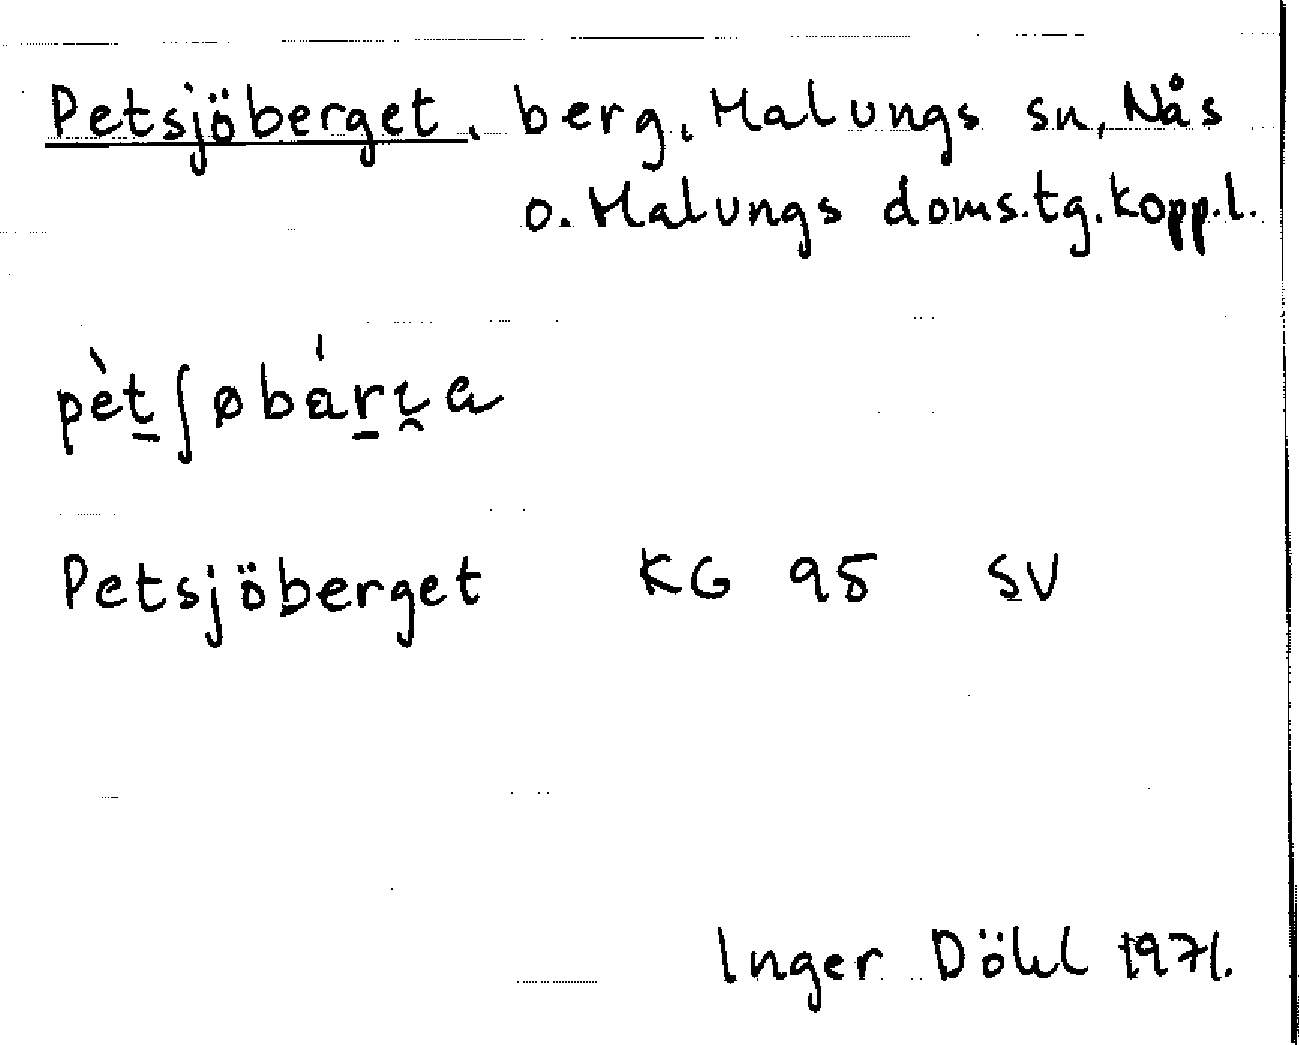 Petsjöberget, berg, Malungs sn, Nås
o. Malungs doms.tg. Kopp.l.
pèt̠ʃøbár̠ı̯a
Petsjöberget KG 95 SV
Inger Döhl 1971.